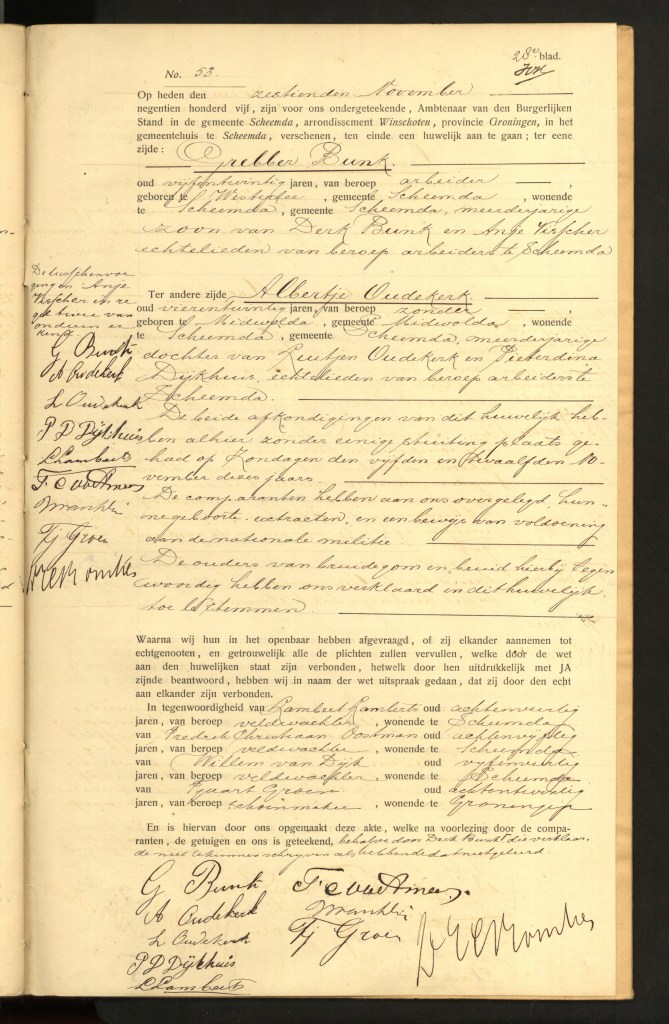 28e blad.
No. 53.
Op heden den zestienden November
negentien honderd vijf, zijn voor ons ondergeteekende, Ambtenaar van den Burgerlijken
Stand in de gemeente Scheemda, arrondissement Winschoten, provincie Groningen, in het
gemeentehuis te Scheemda, verschenen, ten einde een huwelijk aan te gaan; ter eene
zijde: Grebber Bunk.
oud vijfentwintig jaren, van beroep arbeider,
geboren te Westerlee, gemeente Scheemda, wonende
te Scheemda, gemeente Scheemda, meerderjarige
zoon van Derk Bunk en Anje Visscher
echtelieden van beroep arbeiders te Scheemda
Ter andere zijde Albertje Oudekerk
oud vierentwintig jaren, van beroep zonder,
geboren te Midwolda, gemeente Midwolda, wonende
te Scheemda, gemeente Scheemda, meerderjarige
dochter van Luutjen Oudekerk en Pieterdina
Dijkhuis, echtelieden van beroep arbeiders te
Scheemda.
De beide afkondigingen van dit huwelijk heb-
ben alhier zonder eenige stuiting plaats ge-
had op Zondagen den vijfden en twaalfden No-
vember dezes jaars.
De comparanten hebben aan ons overgelegd hun-
ne geboorte-extracten en een bewijs van voldoening
aan de nationale militie.
De ouders van bruidegom en bruid hierbij tegen
woordig hebben ons verklaard in dit huwelijk
toe te stemmen.
De tusschenvoe
ging en Anje
Visscher in re
gel twee van
onderen er
kend
G Bunk
A Oudekerk
L Oudekerk
P D Dijkhuis
L Lamberts
Tj Groen
Waarna wij hun in het openbaar hebben afgevraagd, of zij elkander aannemen tot
echtgenooten, en getrouwelijk alle de plichten zullen vervullen, welke door de wet
aan den huwelijken staat zijn verbonden, hetwelk door hen uitdrukkelijk met JA
zijnde beantwoord, hebben wij in naam der wet uitspraak gedaan, dat zij door den echt
aan elkander zijn verbonden.
In tegenwoordigheid van Lambert Lamberts oud achtenveertig
jaren, van beroep veldwachter, wonende te Scheemda
van Fredrik Christiaan Oostman achtenvijftig
jaren, van beroep veldwachter, wonende te Scheemda
van Willem van Dijk oud vijfenveertig
jaren, van beroep veldwachter, wonende te Scheemda
van Tjaart Groen oud achtentwintig
jaren, van beroep schoenmaker, wonende te Groningen
En is hiervan door ons opgemaakt deze akte, welke na voorlezing door de compa-
ranten, de getuigen en ons is geteekend, behalve door Derk Bunk die verklaar
de niet te kunnen schrijven als hebbende dat niet geleerd
G Bunk
A Oudekerk
L Oudekerk
P D Dijkhuis
L Lamberts
Tj Groen